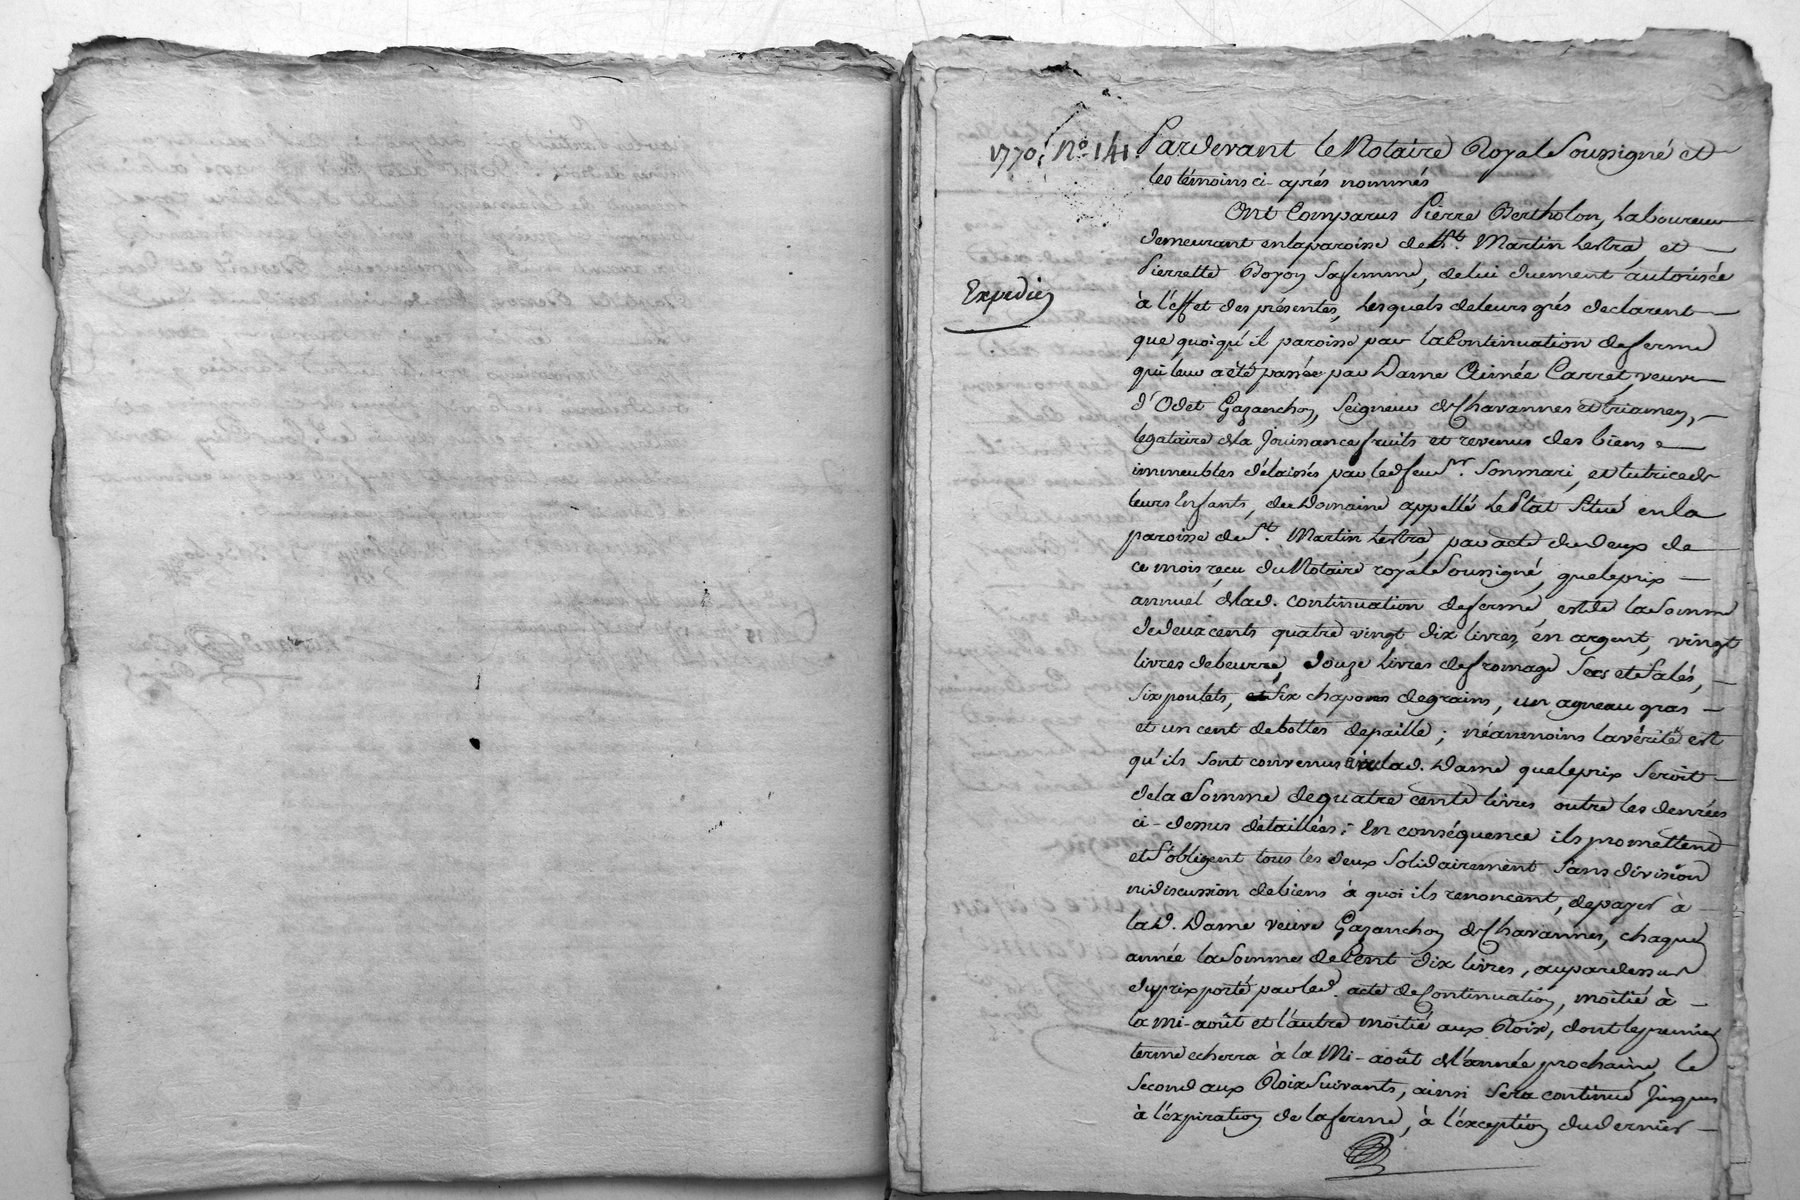 1770, No. 141. Pardevant le Notaire Royal Soussigné et
les témoins ci-aprés nommés
Ont Comparus Pierre Bertholon, Laboureur
demeurant en la paroisse de St. Martin Lestra, et
Expedié
Pierrette Boyon sa femme, de lui duement autorisée
à l'effet des présentes, Lesquels de leurs grés déclarent
que quoiqu'il paroisse par la Continuation de ferme
qui leur a été passée par Dame Aimée Carret, veuve
d'Odet Gazanchon, Seigneur de Chavannes et triamen,
legataire de la Jouissance fruits et revenus des biens
immeubles délaissés par led. feu Sr. Son mari, et tutrice de
leurs Enfants, du Domaine appellé Le Plat Situé en la
paroisse de St. Martin Lestra, par acte du deux de
ce mois reçu du Notaire royal Soussigné, que le prix
annuel de lad. continuation de ferme, est de la Somme
de deux cents quatre vingt dix livres, en argent, vingt
livres de beurre, douze livres de fromage Secs et Salés,
Six poulets, et Six chapons de grains, un agneau gras
et un cent de bottes de paille; néanmoins la vérité est
qu'ils Sont convenus avec lad. Dame que le prix Seroit
de la Somme de quatre cents livres outre les denrées
ci-dessus détaillées; En conséquence ils promettent
et S'obligent tous les deux Solidairement Sans division
ni discussion de biens à quoi ils renoncent, de payer à
lad. Dame veuve Gazanchon de Chavannes, chaque
année la Somme de Cent dix livres, au par dessus
du prix porté par led. acte de Continuation, moitié à
la Mi-août et l'autre moitié aux Roix, dont le premier
terme echerra à la Mi-août de l'année prochaine, le
Second aux Roix Suivants, ainsi Sera continué Jusques
à l'expiration de la ferme, à l'exception du dernier